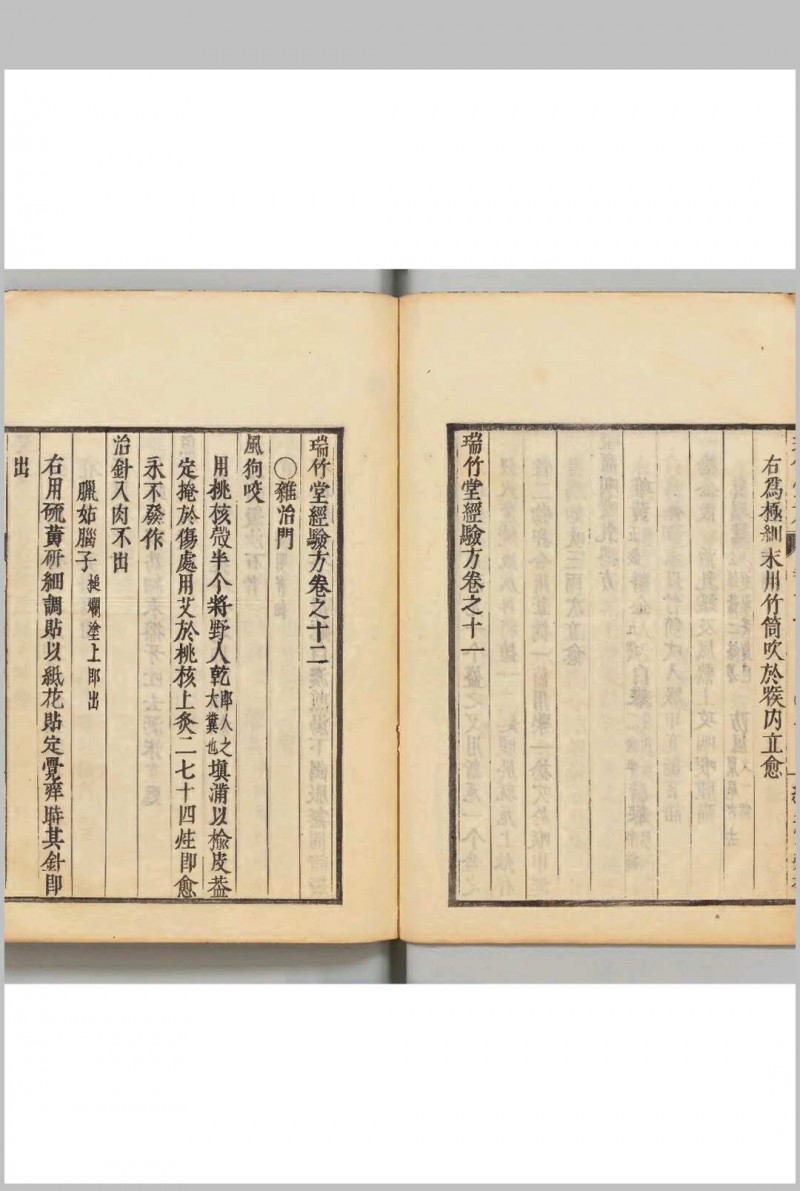 右爲極細末用竹筒吹於喉内立愈
瑞竹堂經驗方卷之十一
瑞竹堂經驗方卷之十二
〇雜治門
風狗咬
用桃核殻半个將野人乾即人之大糞也塡滿以楡皮葢
定掩於傷處用艾於桃核上灸二七十四炷即愈
永不發作
治針入肉不出
臘姑腦子搥爛塗上即出
右用硫黄研細調貼以紙花貼定覺痒時其針即
出